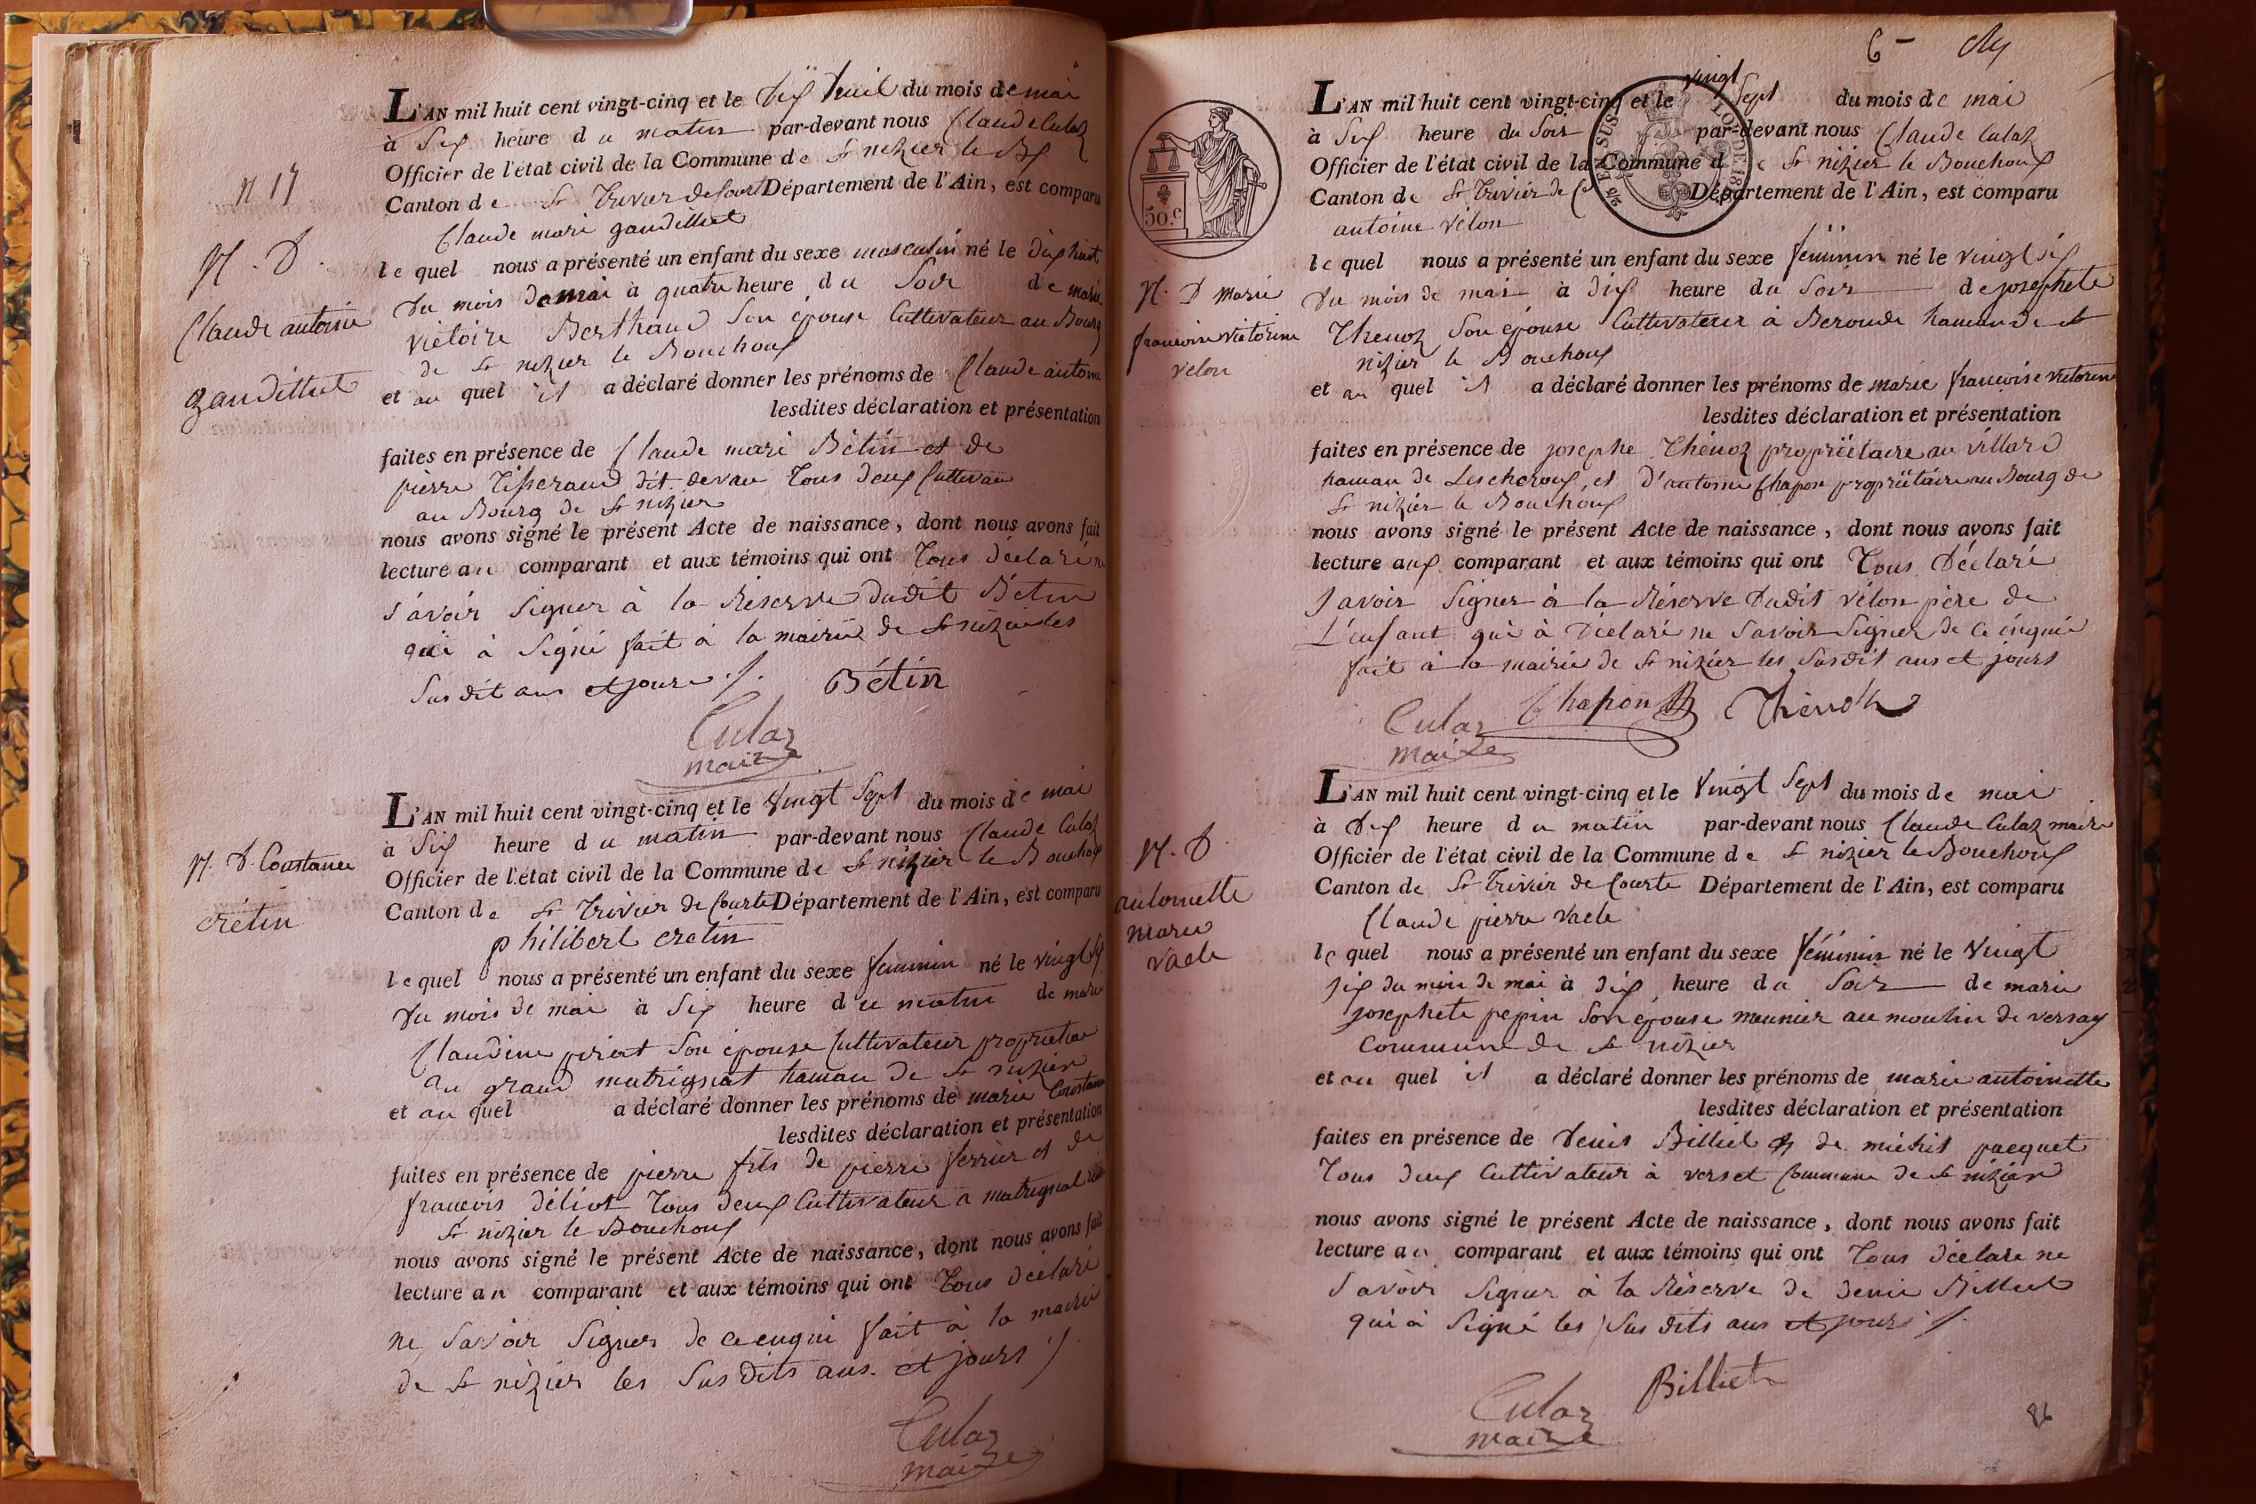 N 17
N. D.
Claude antoine
gaudillet
L'AN mil huit cent vingt-cinq et le dix huit du mois de mai
à Six heure du matin par-devant nous Claude Culaz
Officier de l'état civil de la Commune de St nizier le Bx
Canton de St Trivier de Court Département de l'Ain, est comparu
Claude marie gaudillet
lequel nous a présenté un enfant du sexe masculin né le dix huit
Du mois de mai à quatre heure du Soir de marie
victoire Berthaud Son épouse Cultivateur au Bourg
de St nizier le Bouchoux
et au quel il a déclaré donner les prénoms de Claude antoine
lesdites déclaration et présentation
faites en présence de Claude marie Bétin et de
pierre Tisseraud dit devau Tous deux Cultivau
au Bourg de St nizier
nous avons signé le présent Acte de naissance, dont nous avons fait
lecture au comparant et aux témoins qui ont Tous déclaré ne
Savoir Signer à la Réserve dudit Bétin
qui à Signé fait à la mairie de St nizier les
Susdit ans et jours
Bétin
Culaz
maire
N. D. Constance
crétin
L'AN mil huit cent vingt-cinq et le vingt Sept du mois de mai
à Six heure du matin par-devant nous Claude Culaz
Officier de l'état civil de la Commune de St nizier le Bouchoux
Canton de St Trivier de Courte Département de l'Ain, est comparu
philibert cretin
lequel nous a présenté un enfant du sexe feminin né le vingt Six
Du mois de mai à Six heure du matin de marie
Claudine piriat Son épouse Cultivateur proprietaire
au grand matrignat hamau de St nizier
et au quel a déclaré donner les prénoms de marie Constance
lesdites déclaration et présentation
faites en présence de pierre fils de pierre ferrier et de
francois déliot Tous deux Cultivateur a matrignat
St nizier le Bouchoux
nous avons signé le présent Acte de naissance, dont nous avons fait
lecture au comparant et aux témoins qui ont Tous déclaré
ne Savoir Signer de ce enqui fait à la mairie
de St nizier les Sus dits ans et jours
Culaz
maire
6
50 c
N. D marie
francoise victorine
vélon
L'AN mil huit cent vingt-cinq et le vingt Sept du mois de mai
à Six heure du Soir par-devant nous Claude Culaz
Officier de l'état civil de la Commune de St nizier le Bouchoux
Canton de St Trivier de C Département de l'Ain, est comparu
antoine vélon
lequel nous a présenté un enfant du sexe féminin né le vingt six
Du mois de mai à dix heure du Soir de josephete
Thenoz Son épouse Cultivateur à Beroude hamau de St
nizier le Bouchoux
et au quel il a déclaré donner les prénoms de marie francoise victorine
lesdites déclaration et présentation
faites en présence de josephe Thénoz propriëtaire au villard
hamau de Lescheroux, et D'antoine Chapon propriëtaire au Bourg de
St nizier le Bouchoux
nous avons signé le présent Acte de naissance, dont nous avons fait
lecture aux comparant et aux témoins qui ont Tous Déclaré
Savoir Signer à la Réserve Dudit vélon père de
L'enfant qui à Déclaré ne Savoir Signer de ce enquie
fait à la mairie de St nizier les Susdit ans et jours
Culaz Chapon Thénoz
maire
N. D.
antoinette
marie
vacle
L'AN mil huit cent vingt-cinq et le vingt Sept du mois de mai
à Dix heure du matin par-devant nous Claude Culaz maire
Officier de l'état civil de la Commune de St nizier le Bouchoux
Canton de St Trivier de Courte Département de l'Ain, est comparu
Claude pierre vacle
lequel nous a présenté un enfant du sexe féminin né le vingt
six du mois de mai à dix heure du Soir de marie
josephete pepin Son épouse meunier au moulin de versay
Commune de St nizier
et au quel il a déclaré donner les prénoms de marie antoinette
lesdites déclaration et présentation
faites en présence de Denis Billiet et de michel pacquet
Tous deux Cultivateur à verset Commune de St nizier
nous avons signé le présent Acte de naissance, dont nous avons fait
lecture au comparant et aux témoins qui ont Tous déclaré ne
Savoir Signer à la Réserve de denis Billiet
qui à Signé les Sus dits ans et jours
Billiet
Culaz
maire